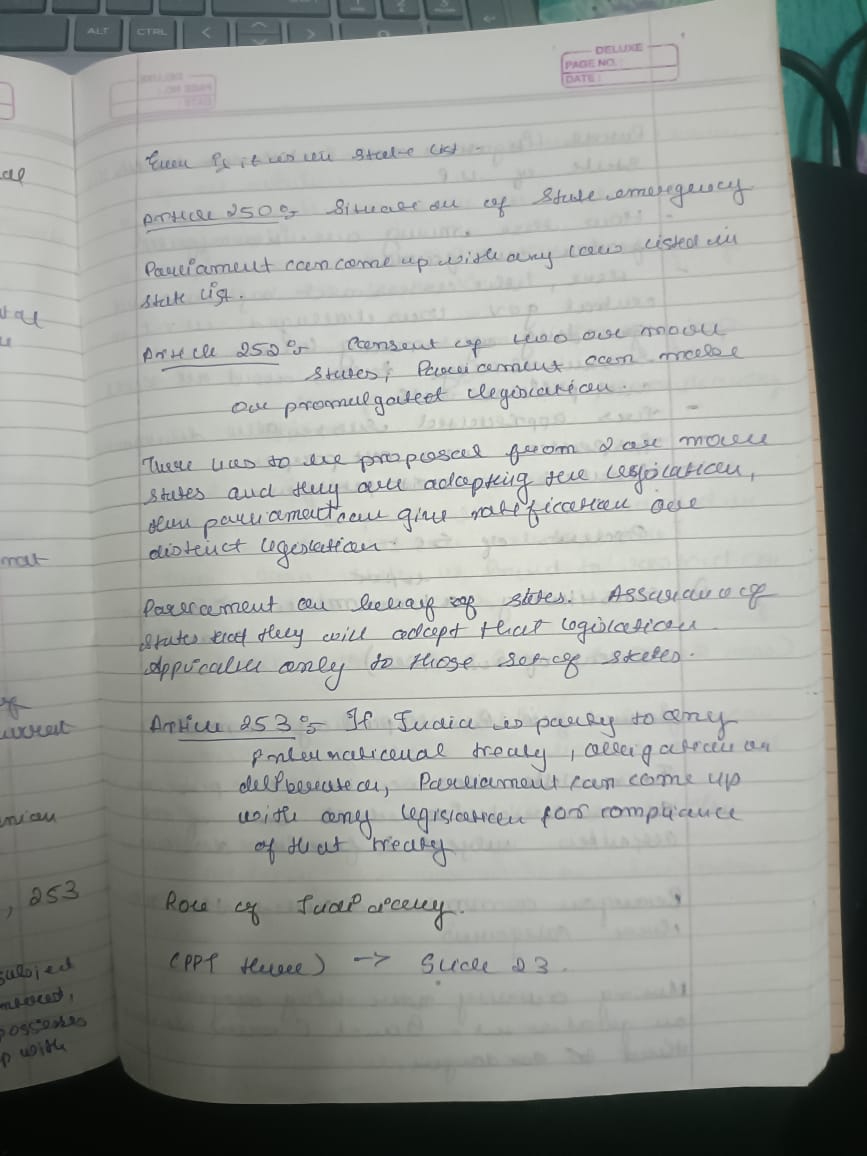 ALT CTRL
DELUXE
PAGE NO.:
DATE:
Even if it is in State list -
Article 250: Situation of State emergency
Parliament can come up with any laws listed in
State list.
Article 252: Consent of two or more
states, Parliament can make
or promulgated legislation.
There has to be proposal from 2 or more
states and they are adopting the legislation,
then parliament can give ratification or
distinct legislation.
Parliament on behalf of states. Assurance of
states that they will adopt that legislation.
Applicable only to those set of states.
Article 253: If India is party to any
international treaty, obligation or
deliberation, Parliament can come up
with any legislation for compliance
of that treaty
Role of Judiciary.
(PPT three) -> Slide 23.
, 253
subject
p with